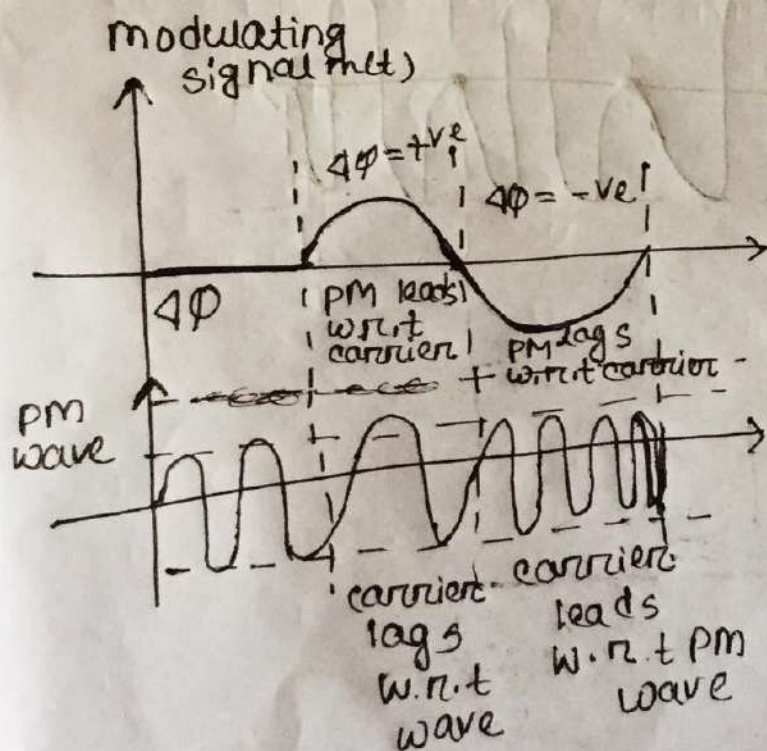 modulating
signal m(t)
Δφ = +ve
Δφ = -ve
Δφ
PM leads
w.r.t
carrier
PM lags
w.r.t carrier
PM
wave
carrier
lags
w.r.t
wave
carrier
leads
w.r.t PM
wave